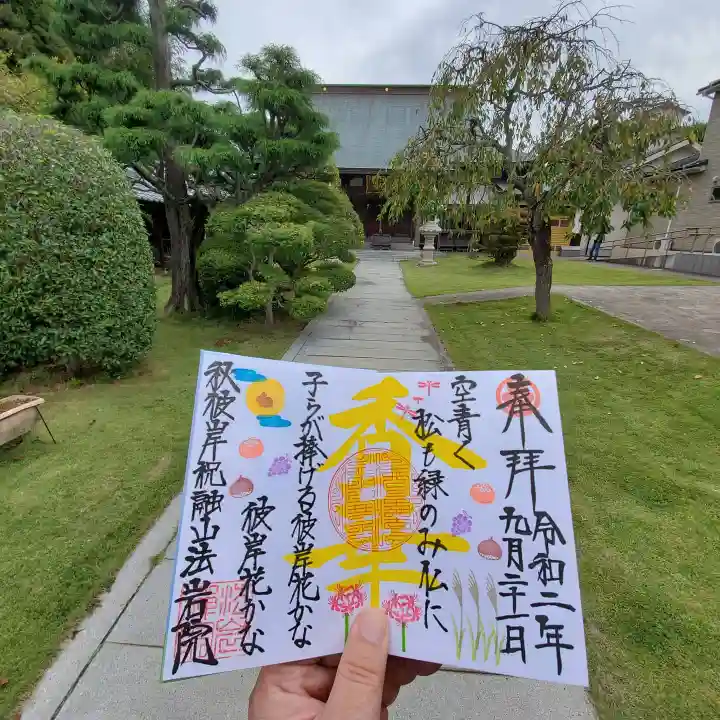 奉拝
令和二年
九月二十一日
空青く
松も緑のみ仏に
香華
子らが捧げる彼岸花かな
彼岸花かな
秋彼岸祝融山法岩院